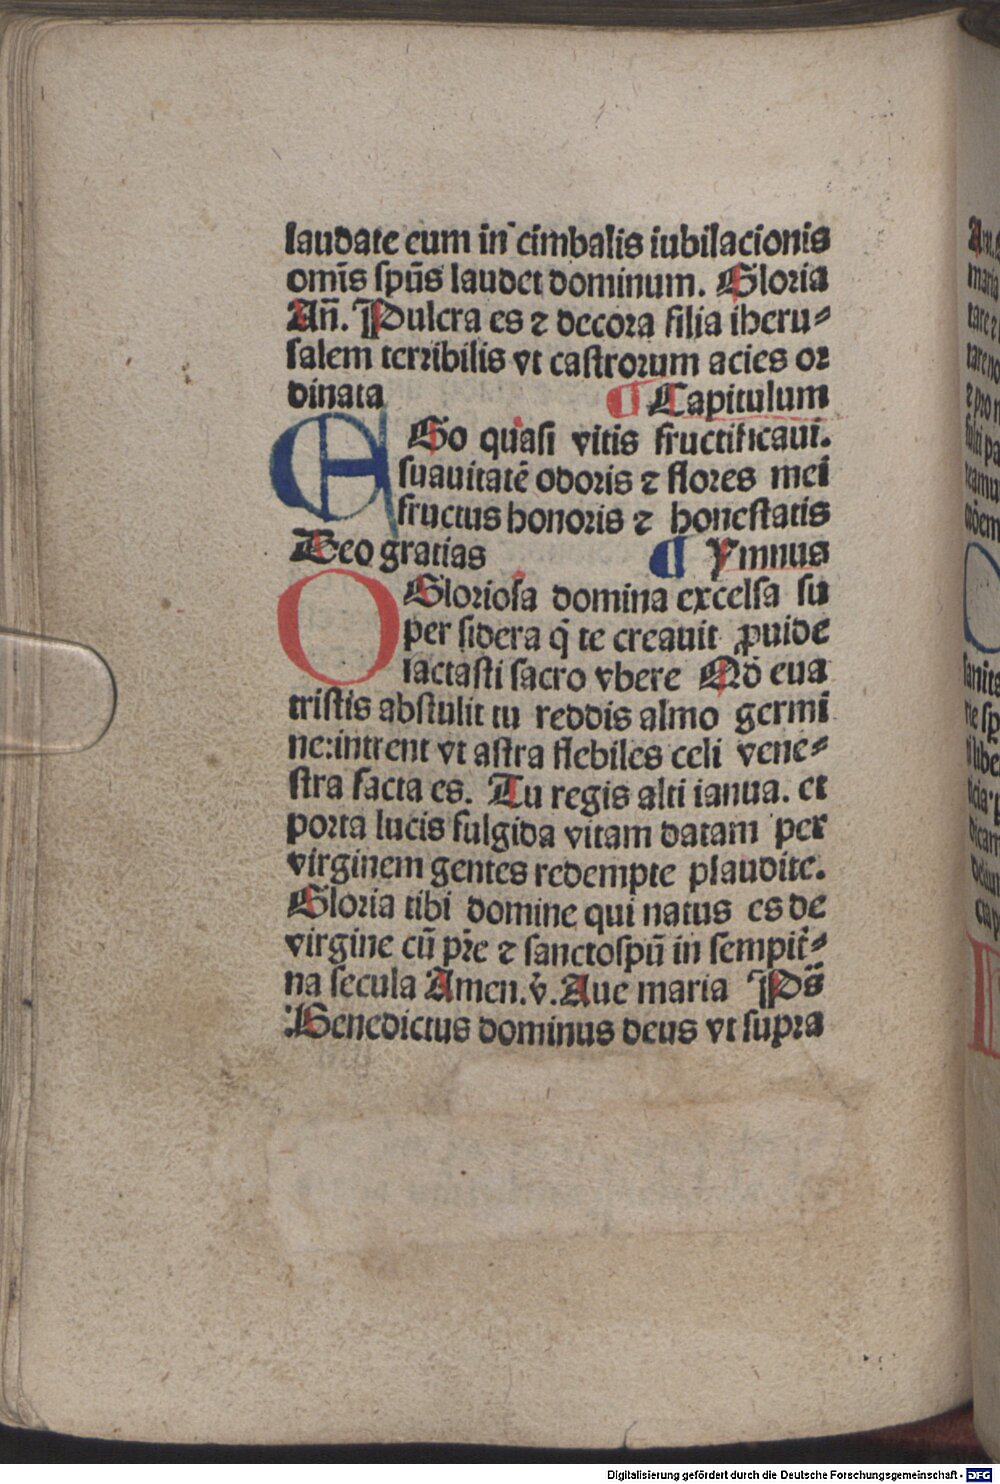 laudate eum in cimbalis iubilacionis
om̄is spūs laudet dominum. Gloria
An̄. Pulcra es ⁊ decora filia iheru⸗
salem terribilis vt castrorum acies or
dinata ¶ Capitulum
EGo quasi vitis fructificaui.
suauitatē odoris ⁊ flores mei
fructus honoris ⁊ honestatis
Deo gratias ¶ Ymnus
OGloriosa domina excelsa su
per sidera q̄ te creauit ꝓuide
lactasti sacro vbere Qđ eua
tristis abstulit tu reddis almo germi
ne:intrent vt astra flebiles celi vene⸗
stra facta es. Tu regis alti ianua. et
porta lucis fulgida vitam datam per
virginem gentes redempte plaudite.
Gloria tibi domine qui natus es de
virgine cū pr̄e ⁊ sanctospū in sempit̄⸗
na secula Amen. v̄. Aue maria Ps̄
Benedictus dominus deus vt supra
Digitalisierung gefördert durch die Deutsche Forschungsgemeinschaft - DFG